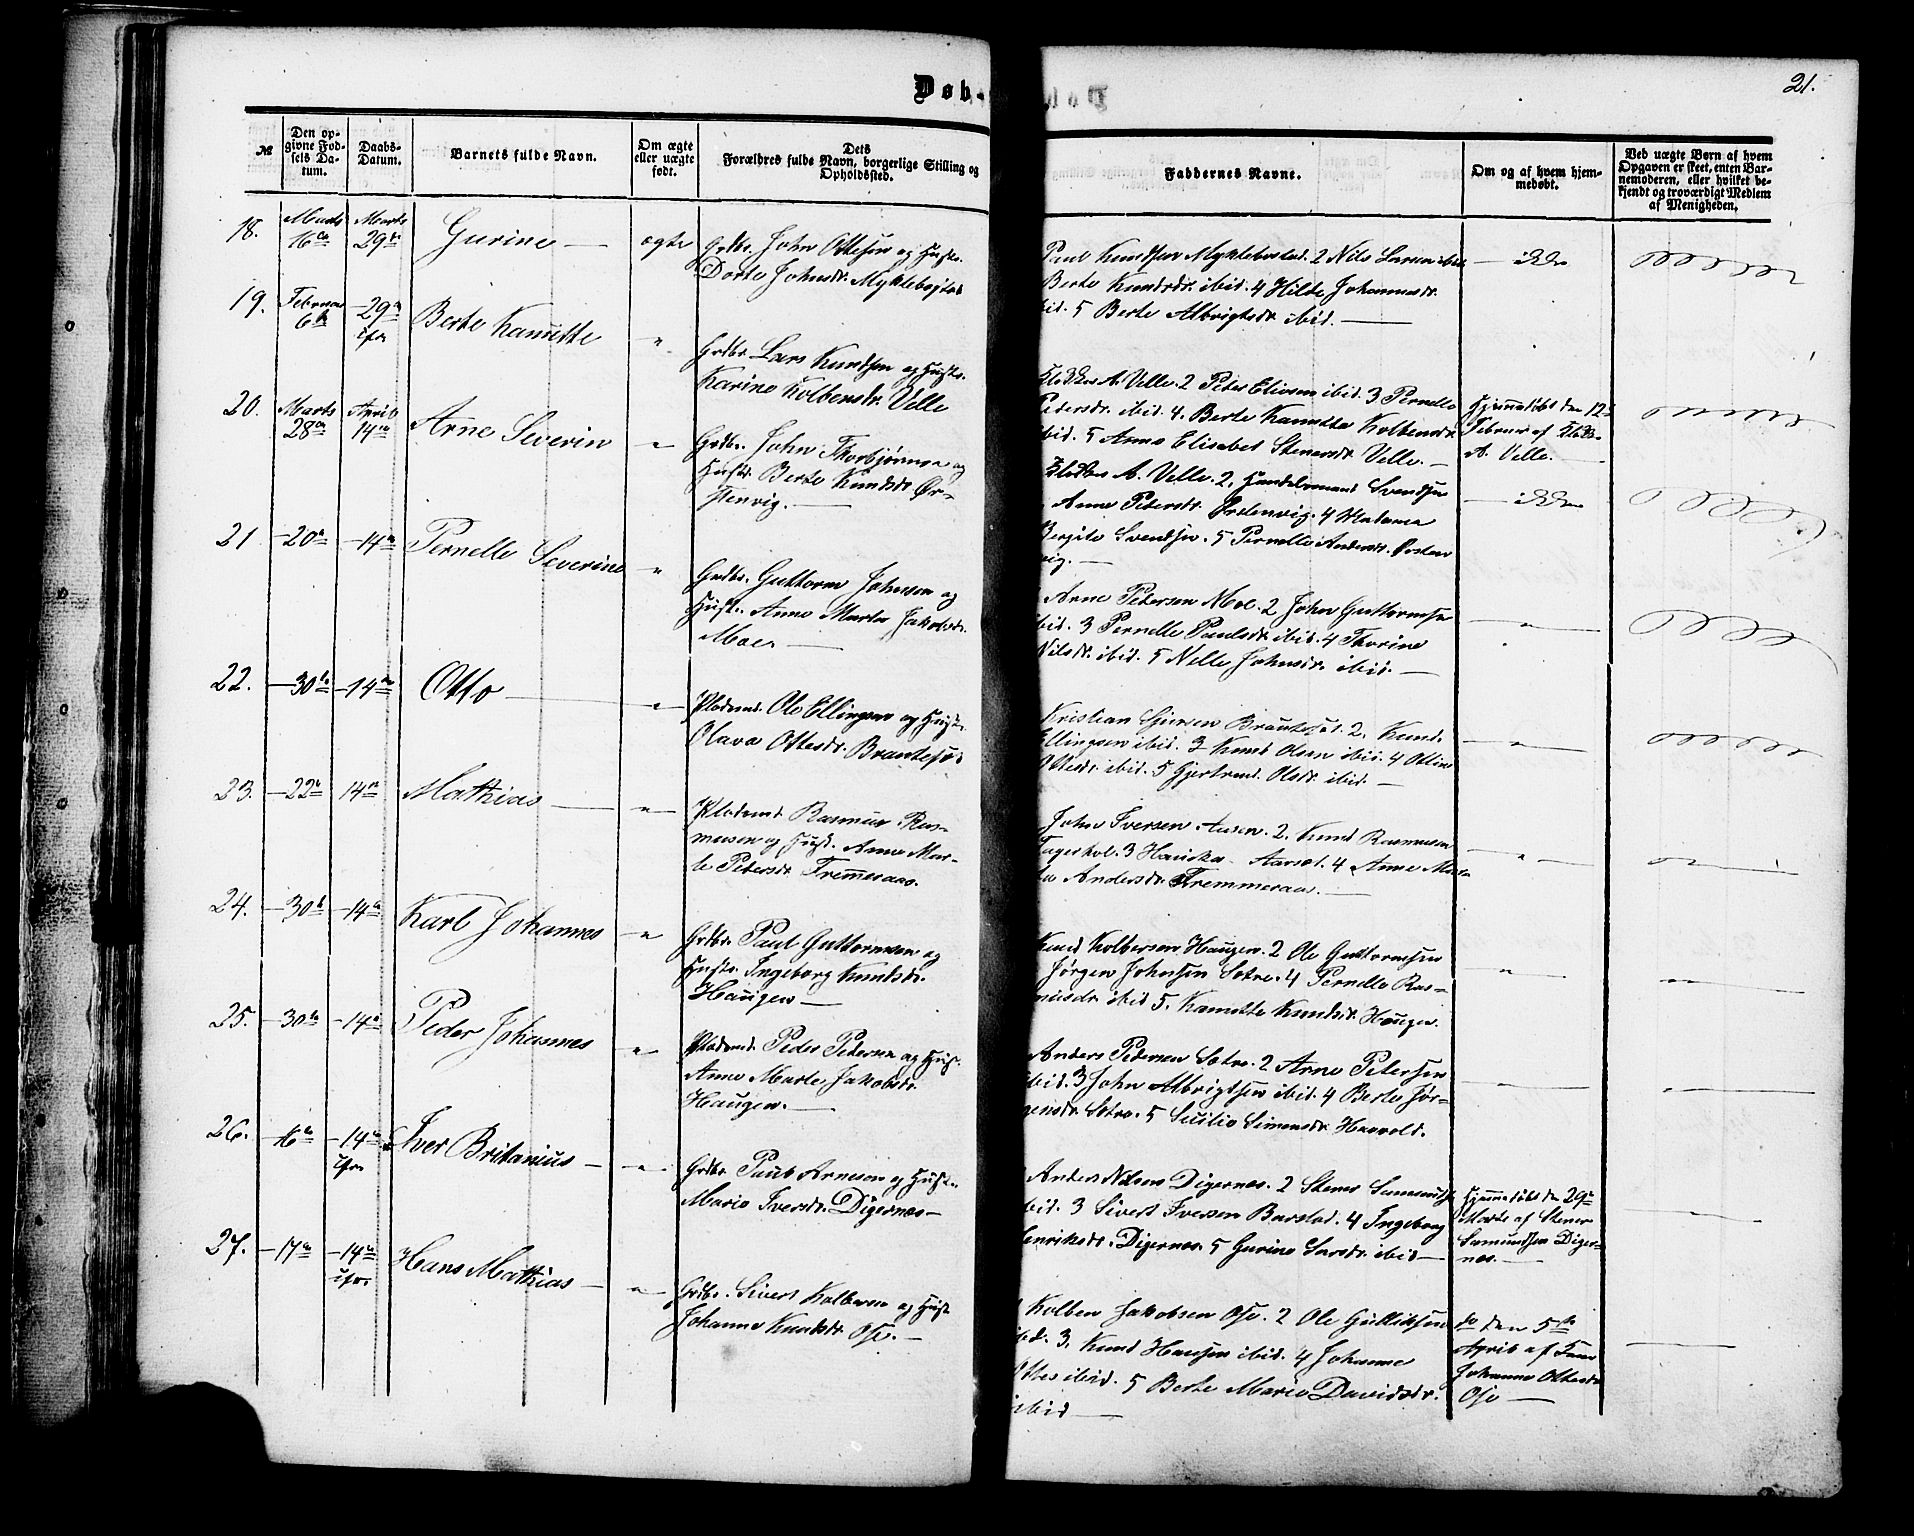 Døb-
21.
№
Den op-
givne Fød-
sels Da-
tum.
Daabs-
Datum.
Barnets fulde Navn.
Om ægte
eller uægte
født.
Dets
Forældres fulde Navn, borgerlige Stilling og
Opholdssted.
Faddernes Navne.
Om og af hvem hjem-
medøbt.
Ved uægte Børn af hvem
Opgaven er skeet, enten Bar-
nemoderen, eller hvilket be-
kjendt og troværdigt Medlem
af Menigheden.
18.
Marts
16de
Marts
29de
Gurine
ægte
Grdbr. John Ottesen og Hustr.
Dorte Johnsdr. Myklebostad
Paul Knudsen Myklebostad. 2 Nils Larsen ibid.
Berte Knudsdr. ibid. 4 Hilte Johannesdr.
ibid. 5 Berte Albrigtsdr. ibid.
ikke
19.
Februar
6te
29de
Berte Kanutte
"
Grdbr. Lars Knudsen og Hustr.
Karine Kolbensdr. Velle
Klokker A. Velle. 2 Peter Eliasen ibid. 3 Pernelle
Petersdr. ibid. 4. Berte Kanutta Kolbensdr.
ibid. 5 Anne Elisabet Stenersdr. Velle.
Hjemmedøbt den 12te
Februar af Klokker
A. Velle.
20.
Marts
28de
April
14de
Arne Severin
"
Grdbr. John Thorbjørnsen og
Hustr. Berte Knudsdr. Ør-
stenvig.
Klokker A. Velle. 2. Handelsmand Svendsen
Anne Petersdr. Ørstenvig. 4 Madama
Bergite Svendsen. 5 Pernelle Andersdr. Ørsten
vig.
ikke
21
20de
14de
Pernelle Severine
"
Grdbr. Guttorm Johnsen og
Hustr. Anne Marte Jakobsdr.
Moe.
Arne Petersen Moe. 2 John Guttormsen
ibid. 3 Pernelle Paulsdr. ibid. 4 Thorine
Nilsdr. ibid. 5 Nelle Johnsdr. ibid.
"
22.
30te
14de
Otto
"
Pladsmd. Ole Ellingsen og Hustr.
Olava Ottesdr. Brautesæt
Kristian Brautesæt. 2. Knud
Ellingsen ibid. 3 Knud Olsen ibid. 4 Oline
Ottesdr. ibid. 5 Gjertrud Olsdr. ibid.
"
23.
22de
14de
Mathias
"
Pladsmd. Rasmus Ras-
musen og Hustr. Anne Mar-
te Petersdr. Fremmeraas.
John Iversen Aasen. 2. Knud Rasmusen
3 Aarsæt. 4 Anne Mar-
te Andersdr. Fremmeraas.
"
24.
30te
14de
Karl Johannes
"
Grdbr. Paul Guttormsen og
Hustr. Ingeborg Knudsdr.
Haugen
Knud Kolbensen Haugen. 2 Ole Guttormsen
Jørgen Johnsen Sætre. 4 Pernelle Ras-
musdr. ibid 5. Kanutte Knudsdr. Haugen.
"
25.
30te
14de
Peder Johannes
"
Pladsmd. Peder Pedersen og Hustr.
Anne Marte Jakobsdr.
Haugen.
Anders Pedersen Sætre. 2 Arne Petersen
ibid. 3 John Albrigtsen ibid. 4 Berte Jør-
gensdr. Sætre. 5 Sicilie Simonsdr. Hovold.
26.
16de
14de
Iver Britanius
"
Grdbr. Paul Arnesen og Hustr.
Marie Iversdr. Digernæs
Anders Nilsen Digernæs. 2 Stener Samundsen
ibid. 3 Sivert Iversen Barstad. 4 Ingeborg
Henriksdr. Digernæs. 5 Gurine Larsdr. ibid
Hjemmedøbt den 29de
Marts af Stener
Samundsen Diger-
næs.
27.
17de
14de
Hans Mathias
"
Grdbr. Sivert Kolbensen og Hustr.
Johanne Knudsdr. Ose.
Kolben Jakobsen Ose. 2 Ole Gulliksen
ibid. 3. Knud Hansen ibid. 4 Johanne
Ottesdr. ibid. 5 Berte Marie Davidsdr.
ibid
do den 5te
April af
Johanne Ottesdr.
Ose